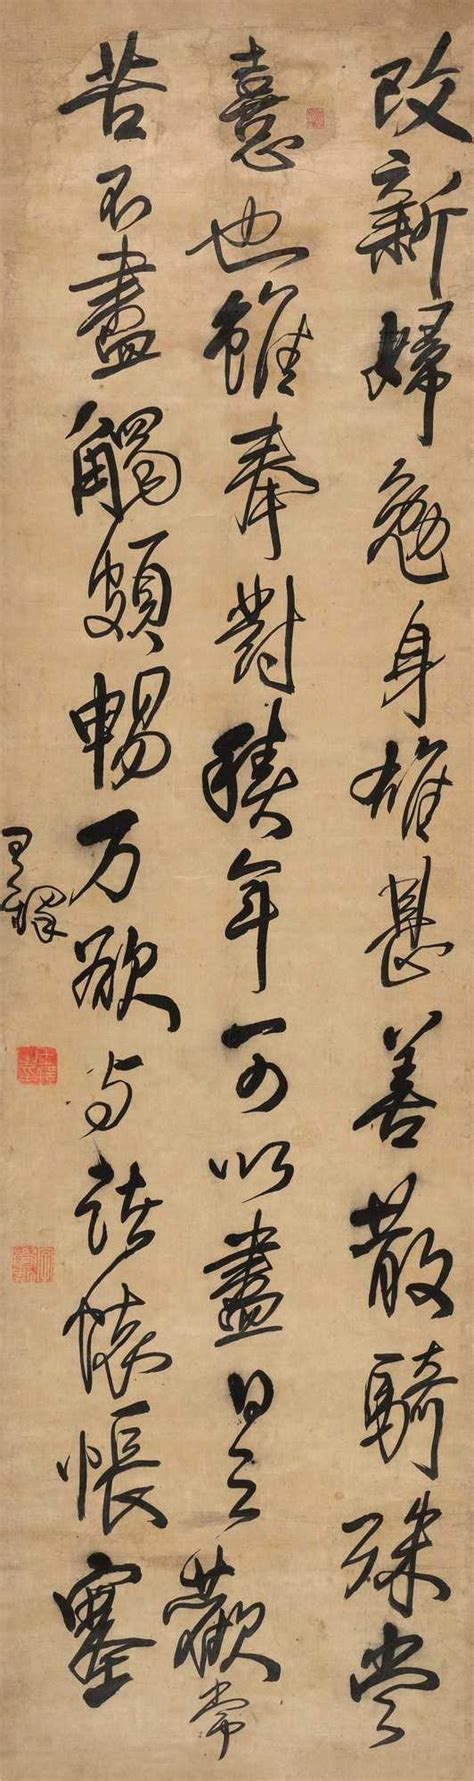 改新婦勉身雄甚善散騎殊當
憙也雖奉對積年可以盡日之歡常
苦不盡觸暢万欲与諸懷悵塞
王鐸